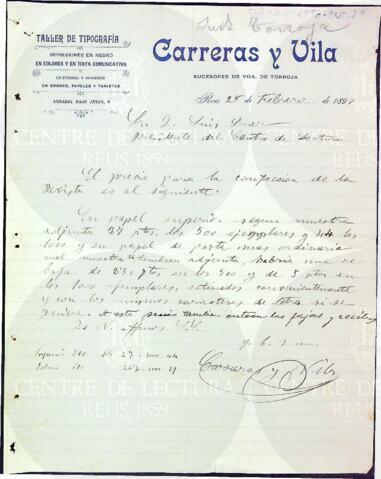 TALLER DE TIPOGRAFÍA
IMPRESIONES EN NEGRO
EN COLORES Y EN TINTA COMUNICATIVA
EXTENSO Y VARIADO
EN SOBRES, PAPELES Y TARJETAS
ARRABAL BAJO JESUS, 4
Luis Torroja
Carreras y Vila
SUCESORES DE VDA. DE TORROJA
Reus 28 de Febrero de
Sr. D. Luis
Presidente del Centro de Lectura
El precio para la confeccion de la
Revista es el siguiente:
En papel superior segun muestra
adjunta 27 ptas. los 500 ejemplares y 44 los
1000 y en papel de pasta mas ordinaria
cual muestra tambien adjunta, habria una re-
baja de ptas en los 500 y de 5 ptas en
los 1000 ejemplares, satinados convenientemente
y con los mismos caracteres de letra si se
quiere. A este precio tambien entran las fajas y recibos
De V. affmos S.S.
q. b. s. m.
Carreras y Vila
CENTRE DE LECTURA
REUS 1859
CENTRE DE LECTURA
REUS 1859